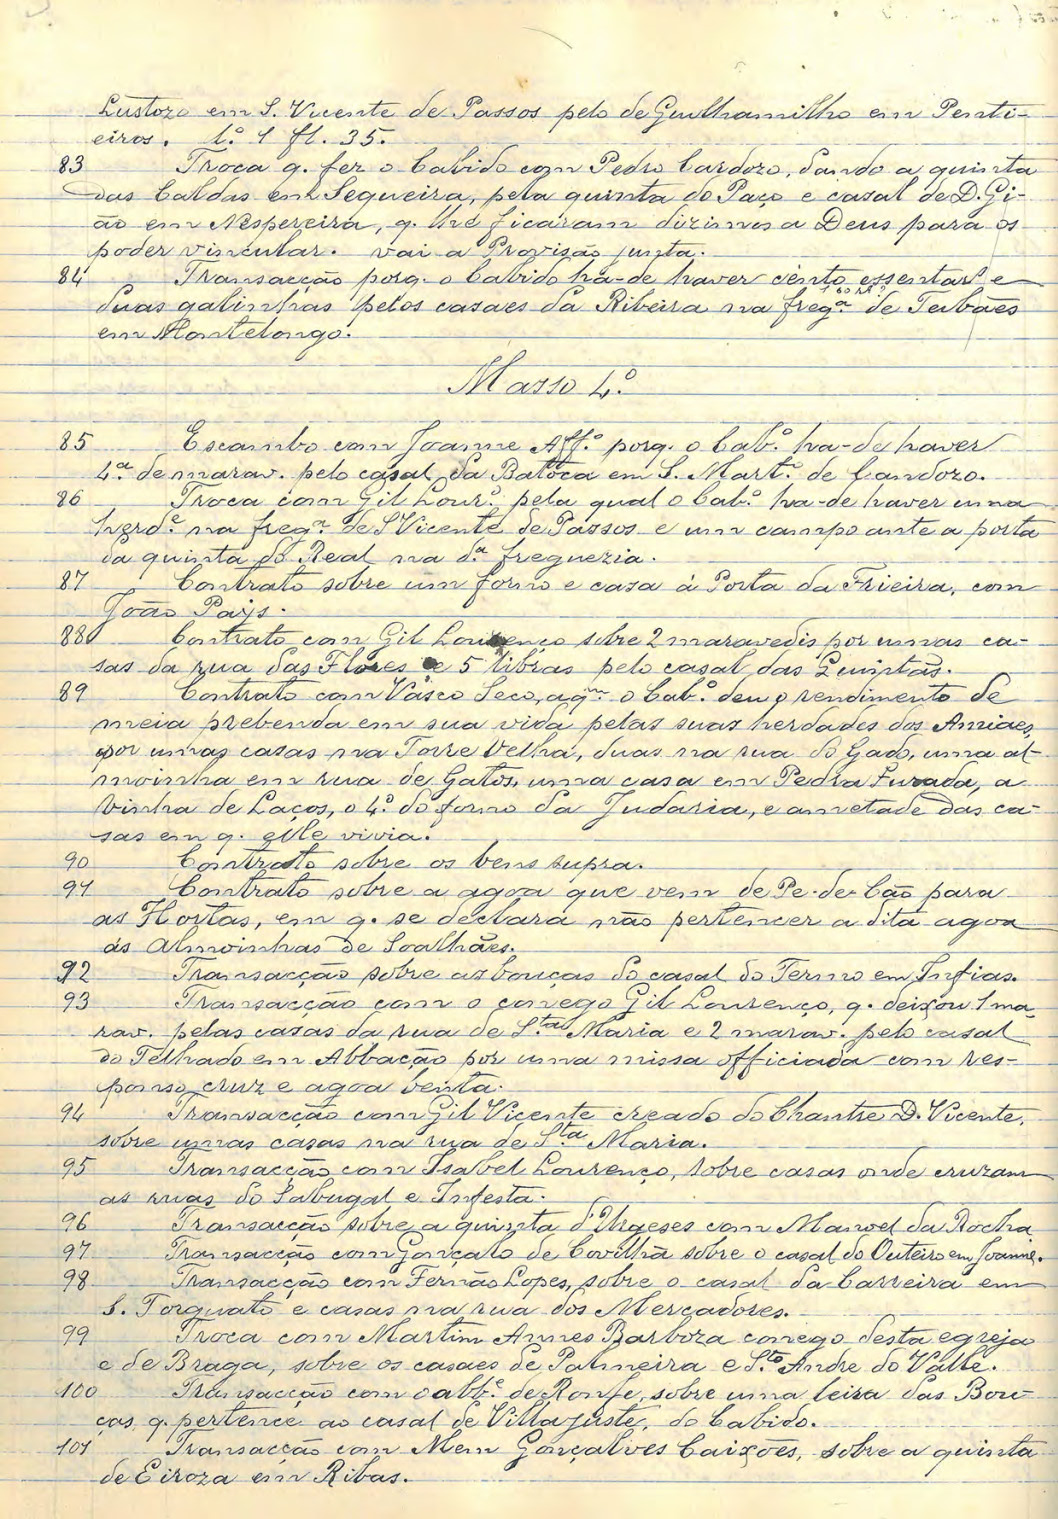 Lustozo em S. Vicente de Passos pelo de Guilhamilho em Penti-
eiros. L.º 1 fl. 35.
83 Troca q. fez o Cabido com Pedro Cardozo, dando a quinta
das Caldas em Sequeira, pela quinta do Paço e casal de D. Gi-
ão em Nespereira, q. lhe ficaram dizimos a Deus para os
poder vincular. vai a Provisão junta.
84 Transacção porq. o Cabido há-de haver cento essentar.^s e
160 rs?
duas galinhas pelos casaes da Ribeira na freg.ª de Tabões
em Montelongo.
Masso 4.º
85 Escambo com Joanne Aff.º porq. o Cab.º ha-de haver
4.ª de marav. pelo casal da Batóca em S. Mart.º de Candozo.
86 Troca com Gil Lour.º pela qual o Cab.º ha-de haver uma
herd.e na freg.ª de S Vicente de Passos e um campo ante a porta
da quinta do Real na d.ª freguezia.
87 Contrato sobre um forno e casa á Porta da Frieira, com
João Pays.
88 Contrato com Gil Lourenço sobre 2 maravedis por umas ca-
sas da rua das Flores e 5 libras pelo casal das Quintãs.
89 Contrato com Vasco Seco, a q.m o Cab.º deu o rendimento de
meia prebenda em sua vida pelas suas herdades dos Amiaes,
por umas casas na Torre Velha, duas na rua do Gado, uma al-
moinha em rua de Gatos, uma casa em Pedra Furada, a
vinha de Laços, o 4.º do forno da Judaria, e ametade das ca-
sas em q. elle vivia.
90 Contrato sobre os bens supra.
91 Contrato sobre a agoa que vem de Pe-de-Cão para
as Hortas, em q. se declara não pertencer a dita agoa
ás Almoinhas de Soalhães.
92 Transacção sobre as bouças do casal do Termo em Infias.
93 Transacção com o conego Gil Lourenço, q. deixou 1 ma-
rav. pelas casas da rua de S.ta Maria e 2 marav. pelo casal
do Telhado em Abbação por uma missa officiada com res-
ponso, cruz e agoa benta.
94 Transacção com Gil Vicente creado do Chantre D. Vicente,
sobre umas casas na rua de S.ta Maria.
95 Transacção com Isabel Lourenço, sobre casas onde cruzam
as ruas do Sabugal e Infesta.
96 Transacção sobre a quinta d'Urgeses com Manoel da Rocha
97 Transacção com Gonçalo de Covilhã sobre o casal do Outeiro em Joanne.
98 Transacção com Fernão Lopes, sobre o casal da Carreira em
S. Torquato e casas na rua dos Mercadores.
99 Troca com Martim Annes Barboza conego desta egreja
e de Braga, sobre os casaes de Palmeira e S.to Andre do Valle.
100 Transacção com o abb.e de Ronfe, sobre uma leira das Bou-
ças, q. pertence ao casal de Villa juste, do Cabido.
101 Transacção com Mem Gonçalves Caixões, sobre a quinta
de Eiroza em Ribas.